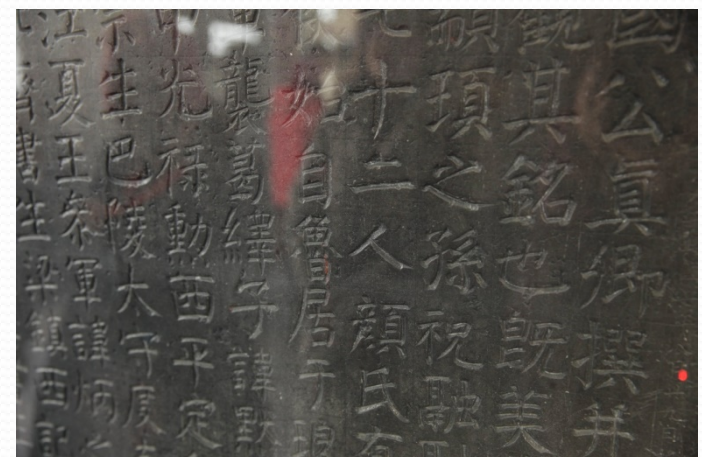 國公眞卿撰并
觀其銘也既美
顓頊之孫祝融
七十二人顏氏有
後始自魯居于琅
襲葛繹子諱默
中光禄勳西平定
宗生巴陵太守度
江夏王參軍諱炳之
齊書生梁鎮西記